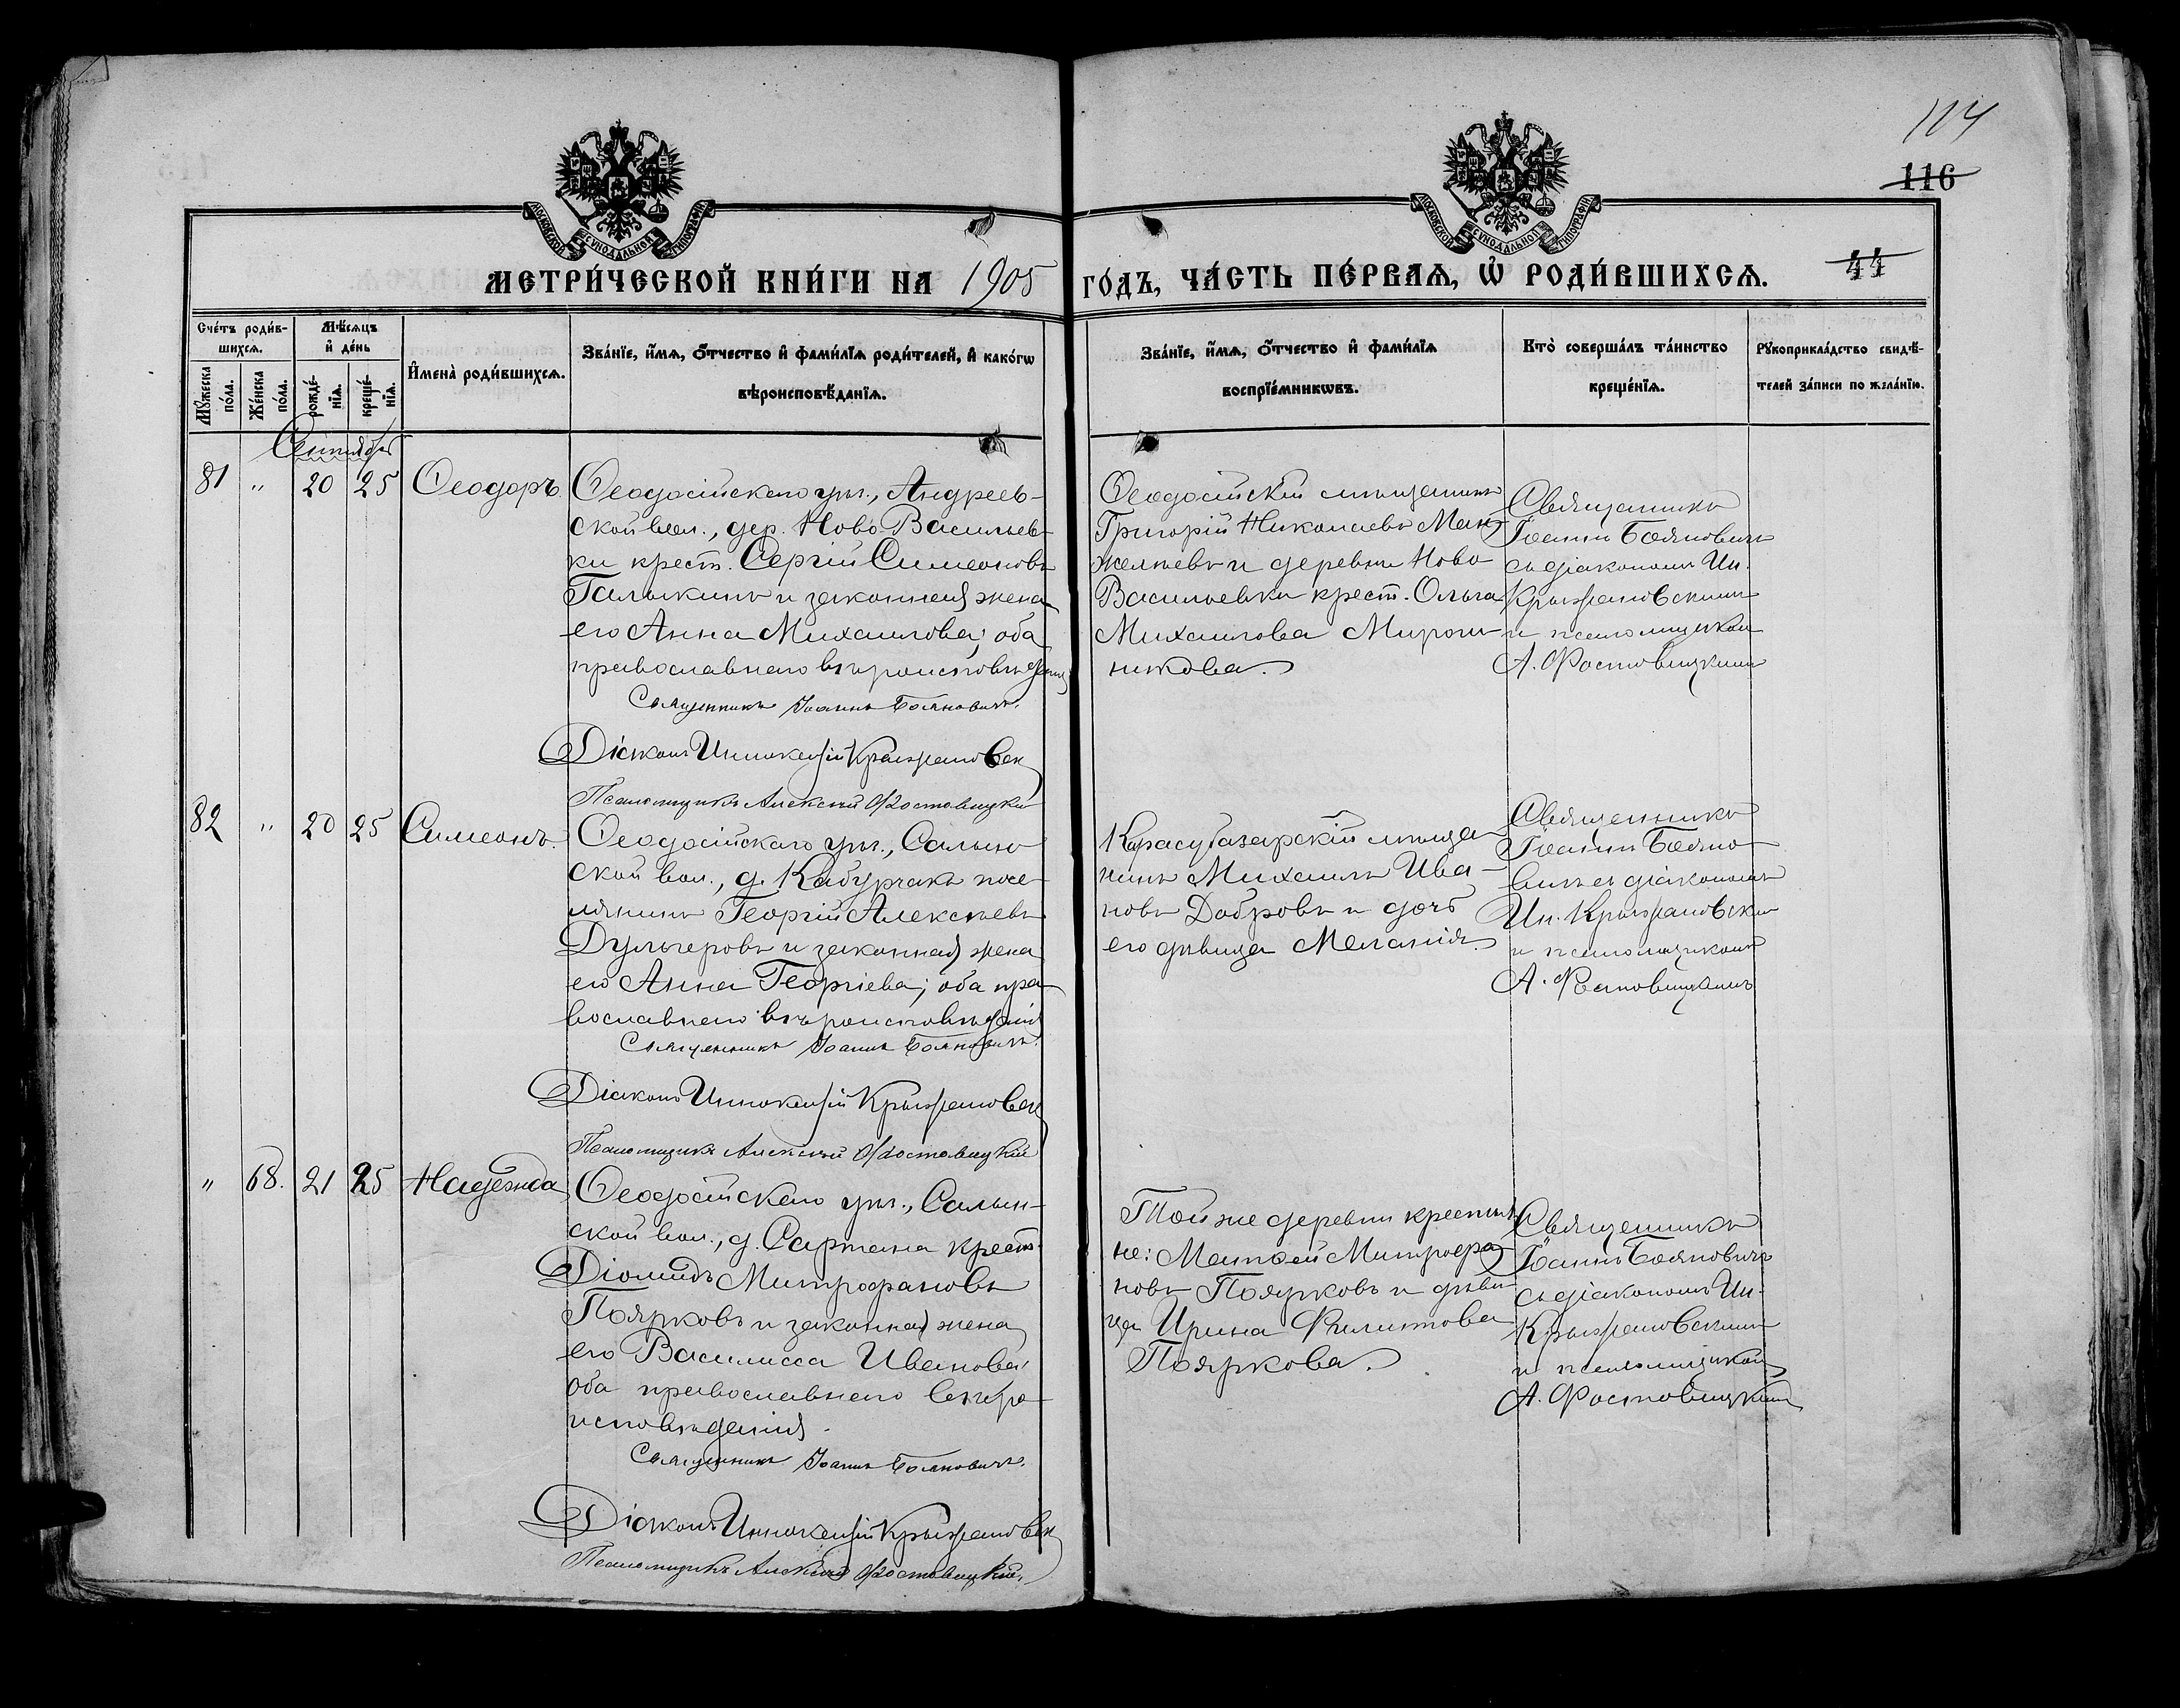 114
116
МОСКОВСКОЙ СѴНОДАЛЬНОЙ ТИПОГРАФІИ
МОСКОВСКОЙ СѴНОДАЛЬНОЙ ТИПОГРАФІИ
МЕТРИ́ЧЕСКОЙ КНИ́ГИ НА 1905 ГО́ДЪ, ЧА́СТЬ ПЕ́РВАѦ, Ѡ҆ РОДИ́ВШИХСѦ.
44
Сче́тъ роди́в-
шихсѧ.
Мꙋ́жеска по́ла.
Же́нска по́ла.
Мѣ́сѧцъ
и҆ де́нь
рожде́-
нїѧ.
креще́-
нїѧ.
И҆мена̀ роди́вшихсѧ.
Зва́нїе, и҆́мѧ, ѻ҆́тчество и҆ фами́лїѧ роди́телей, и҆ како́гѡ
вѣроисповѣ́данїѧ.
Зва́нїе, и҆́мѧ, ѻ҆́тчество и҆ фами́лїѧ
воспрїе́мникѡвъ.
Кто̀ соверша́лъ та́инство
креще́нїѧ.
Рꙋкоприкла́дство свидѣ́-
телей за́писи по жела́нїю.
Сентябрь
81 " 20 25 Ѳеодоръ.
Ѳеодосійскаго уѣз., Андреев-
ской вол., дер. Ново Васильев-
ки крест. Сергій Симеоновъ
Галыкинъ и законная жена
его Анна Михаилова; оба
православнаго вѣроисповѣданія
Священникъ Іоаннъ Бояновичъ.
Діаконъ Иннокентій Крыжановск
Псаломщикъ Алексѣй Фостовицкій
Ѳеодосійскій мѣщанинъ
Григорій Николаевъ Ман-
желѣевъ и деревни Ново
Васильевки крест. Ольга
Михаилова Мирош-
никова.
Священникъ
Іоаннъ Бояновичъ
съ діакономъ Ин.
Крыжановскимъ
и псаломщикомъ
А. Фостовицкимъ
82 " 20 25 Симеонъ.
Ѳеодосійскаго уѣз., Салын-
ской вол., д. Кабурчакъ посе-
лянинъ Георгій Алексѣевъ
Дульгеровъ и законная жена
его Анна Георгіева; оба пра-
вославнаго вѣроисповѣданія
Священникъ Іоаннъ Бояновичъ.
Діаконъ Иннокентій Крыжановск
Псаломщикъ Алексѣй Фостовицкій
Карасубазарскій мѣща-
нинъ Михаилъ Ива-
новъ Добровъ и дочь
его дѣвица Меланія.
Священникъ
Іоаннъ Бояно-
вичъ съ діакономъ
Ин. Крыжановским
и псаломщикомъ
А. Фостовицкимъ
" 68. 21 25 Надежда
Ѳеодосійскаго уѣз., Салын-
ской вол., д. Сартана крест.
Діомидъ Митрофановъ
Поярковъ и законная жена
его Василисса Иванова;
оба православнаго вѣро-
исповѣданія.
Священникъ Іоаннъ Бояновичъ.
Діаконъ Иннокентій Крыжановск
Псаломщикъ Алексѣй Фостовицкій.
Той же деревни крестья-
не: Матѳей Митрофа-
новъ Поярковъ и дѣви-
ца Ирина Филиппова
Пояркова.
Священникъ
Іоаннъ Бояновичъ
съ діакономъ Ин.
Крыжановскимъ
и псаломщикомъ
А. Фостовицкимъ